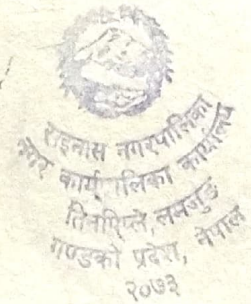 राइनास नगरपालिका
नगर कार्यपालिका कार्यालय
तिनपिप्ले, लमजुङ
गण्डकी प्रदेश, नेपाल
२०७३